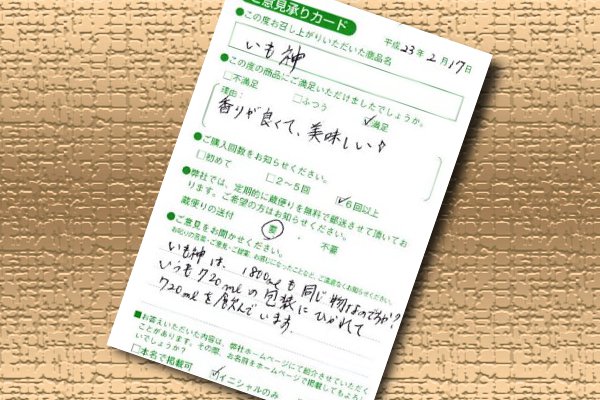 ご意見承りカード
平成23年2月17日
●この度お召し上がりいただいた商品名
いも神
●この度の商品にご満足いただけましたでしょうか。
□不満足 □ふつう ☑満足
理由：
香りが良くて、美味しい♪
●ご購入回数をお知らせください。
□初めて □2～5回 ☑6回以上
●弊社では、定期的に蔵便りを無料で郵送させて頂いてお
ります。ご希望の方はお知らせください。
蔵便りの送付 要 ・ 不要
●ご意見をお聞かせください。
お叱りの言葉・ご意見・ご提案、お感じになったことなど、ご遠慮なくお知らせください。
いも神は、1800mlも同じ物なのですか!?
いつも720mlの包装にひかれて
720mlを飲んでいます。
■お答えいただいた内容は、弊社ホームページにて紹介させていただく
ことがあります。その際、お名前をホームページで掲載してもよろし
いでしょうか？
□本名で掲載可 ☑イニシャルのみ